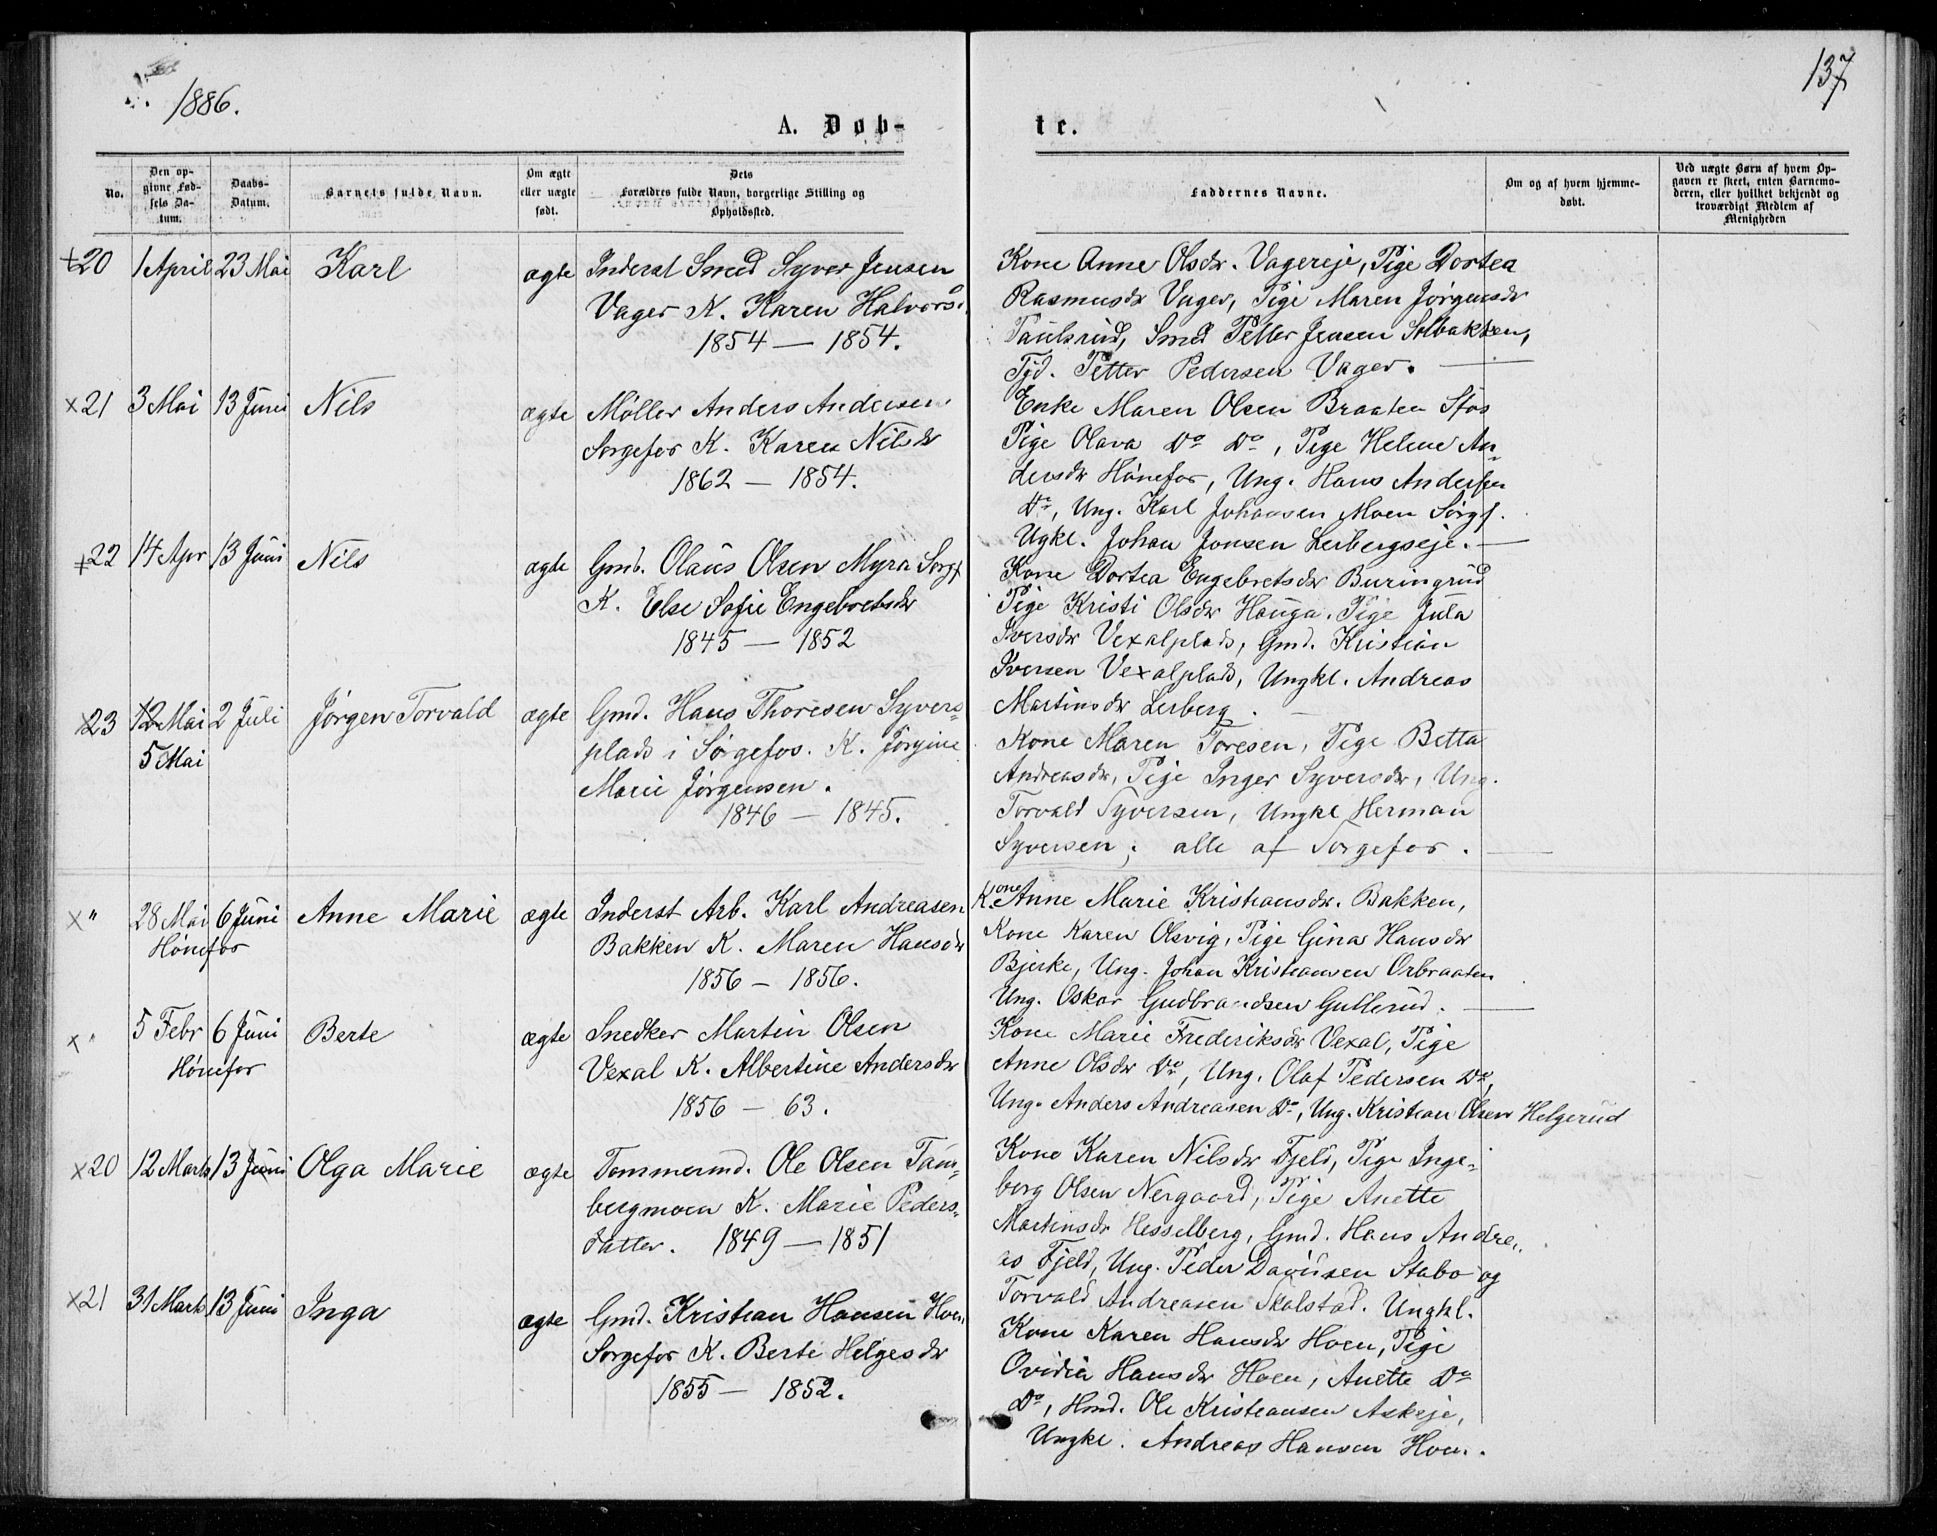 1886.
137
A. Døb-
te.
No.
Den op-
givne Fød-
sels Da-
tum.
Daabs-
Datum.
Barnets fulde Navn.
Om ægte
eller uægte
født.
Dets
Forældres fulde Navn, borgerlige Stilling og
Opholdssted.
Faddernes Navne.
Om og af hvem hjemme-
døbt.
Ved uægte Børn af hvem Op-
gaven er skeet, enten Barnemo-
deren, eller hvilket bekjendt og
troværdigt Medlem af
Menigheden
+20 1 April 23 Mai Karl ægte
Inderst Smed Syver Jensen
Vager K. Karen Halvorsd.
1854 — 1854.
Kone Anne Olsdr. Vagereje, Pige Dortea
Rasmusdr Vager, Pige Maren Jørgensdr
Paulsrud, Smed Petter Jensen Solbakken,
Tjd. Petter Pedersen Vager. —
×21 3 Mai 13 Juni Nils ægte
Møller Anders Andersen
Sørgefos K. Karen Nilsdr
1862 — 1854.
Enke Maren Olsen Braaten Sfos
Pige Olava Do Do, Pige Helene An-
dersdr Hønefos, Ung. Hans Andersen
Do, Ung. Karl Johansen Moen Sørgf.
Ugkl. Johan Jonsen Lerbergseje. —
+22 14 Apr 13 Juni Nils ægte
Gmd. Olaus Olsen Myra Sørgf
K. Else Sofie Engebretsdr
1845 — 1852
Kone Dortea Engebretsdr Buringrud
Pige Kristi Olsdr Hauga, Pige Jula
Iversdr Vexalplads, Gmd. Kristian
Iversen Vexalplads, Ungkl. Andreas
Martinsdr Lerberg. —
×23 12 Mai 2 Juli Jørgen Torvald ægte
5 Mai
Gmd. Hans Thoresen Syvers-
plads i Sørgefos. K. Jørgine
Marie Jørgensen.
1846 — 1845.
Kone Maren Toresen, Pige Betta
Andreasdr, Pige Inger Syversdr, Ung.
Torvald Syversen, Ungkl Herman
Syversen; alle af Sørgefos. —
×" 28 Mai 6 Juni Anne Marie ægte
Hønefos
Inderst Arb. Karl Andreasen
Bakken K. Maren Hansdr
1856 — 1856.
Kone Anne Marie Kristiansdr. Bakken,
Kone Karen Olsvig, Pige Gina Hansdr
Bjerke, Ung. Johan Kristiansen Orbraaten
Ung. Oskar Gudbrandsen Gullerud. —
×" 5 Febr 6 Juni Berte ægte
Hønefos
Snedker Martin Olsen
Vexal K. Albertine Andersdr
1856 — 63.
Kone Marie Frederiksdr Vexal, Pige
Anne Olsdr Do, Ung. Olaf Pedersen Do,
Ung. Anders Andreasen Do, Ung. Kristian Olsen Helgerud
×20 12 Marts 13 Juni Olga Marie ægte
Tømmermd. Ole Olsen Tans-
bergmoen K. Marie Peders-
datter. 1849 — 1851
Kone Karen Nilsdr Fjeld, Pige Inge-
borg Olsen Nergaard, Pige Anette
Martinsdr Hesselberg, Gmd. Hans Andre-
as Fjeld, Ung. Peder Davidsen Stabo og
Torvald Andreasen Skolstad. Ungkl.
×21 31 Marts 13 Juni Inga ægte
Gmd. Kristian Hansen Hoen,
Sørgefos K. Berte Helgesdr
1855 — 1852.
Kone Karen Hansdr Hoen, Pige
Ovidia Hansdr Hoen, Anette Do
Do, Hmd. Ole Kristiansen Askeje,
Ungkl. Andreas Hansen Hoen.